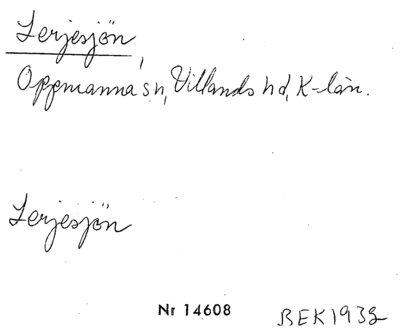 Lerjesjön,
Oppmanna sn, Villands hd, K-län.
Lerjesjön
Nr 14608
BEK 1932